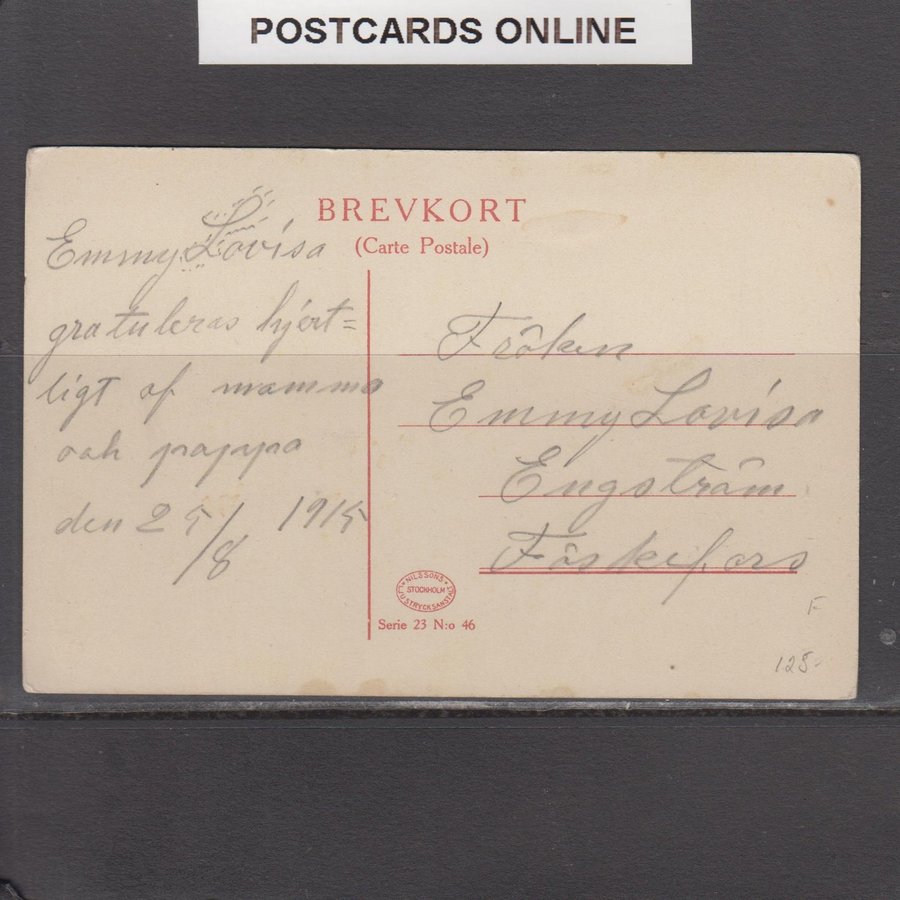 POSTCARDS ONLINE
BREVKORT
(Carte Postale)
Emmy Lovisa
gratuleras hjert=
ligt af mamma
och pappa
den 25/8 1915
Fröken
Emmy Lovisa
Engström
Fåskefors
NILSSONS
STOCKHOLM
LJUSTRYCKSANSTALT
Serie 23 N:o 46
F
125-